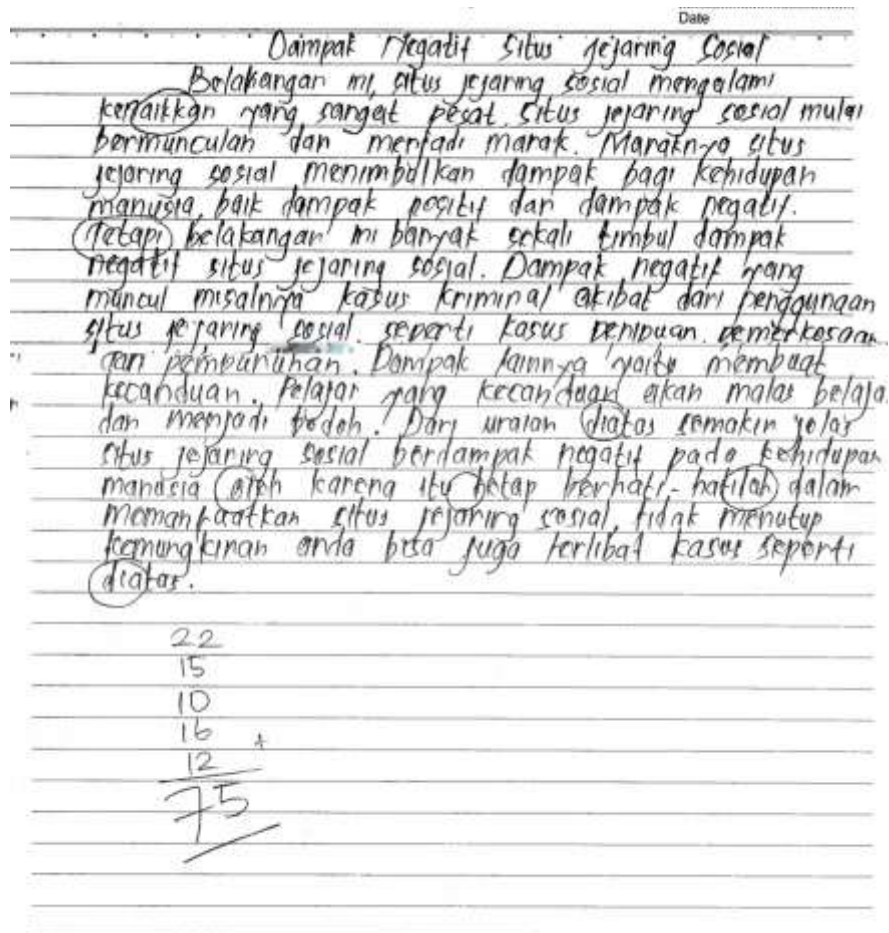 Date
Dampak Negatif Situs Jejaring Sosial
Belakangan ini, situs jejaring sosial mengalami
kenaikkan yang sangat pesat. Situs jejaring sosial mulai
bermunculan dan menjadi marak. Maraknya situs
jejaring sosial menimbulkan dampak bagi kehidupan
manusia, baik dampak positif dan dampak negatif.
Tetapi belakangan ini banyak sekali timbul dampak
negatif situs jejaring sosial. Dampak negatif yang
muncul misalnya kasus kriminal akibat dari penggunaan
situs jejaring sosial. seperti kasus penipuan. pemerkosaan
dan pembunuhan. Dampak lainnya yaitu membuat
kecanduan. Pelajar yang kecanduan akan malas belaja
dan menjadi bodoh. Dari uraian diatas semakin jelas
situs jejaring sosial berdampak negatif pada kehidupan
manusia oleh karena itu tetap berhati-hatilah dalam
memanfaatkan situs jejaring sosial, tidak menutup
kemungkinan anda bisa juga terlibat kasus seperti
diatas.
22
15
10
16
12 +
75